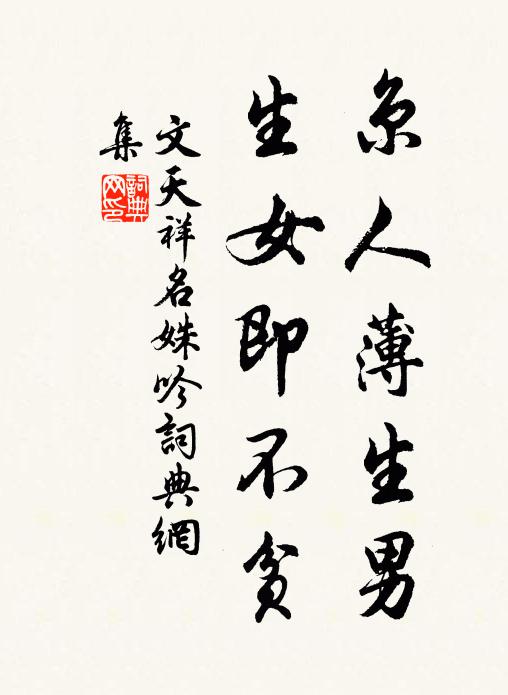 京人薄生男
生女即不贫
文天祥名姝吟詞典網
集
詞典
网印